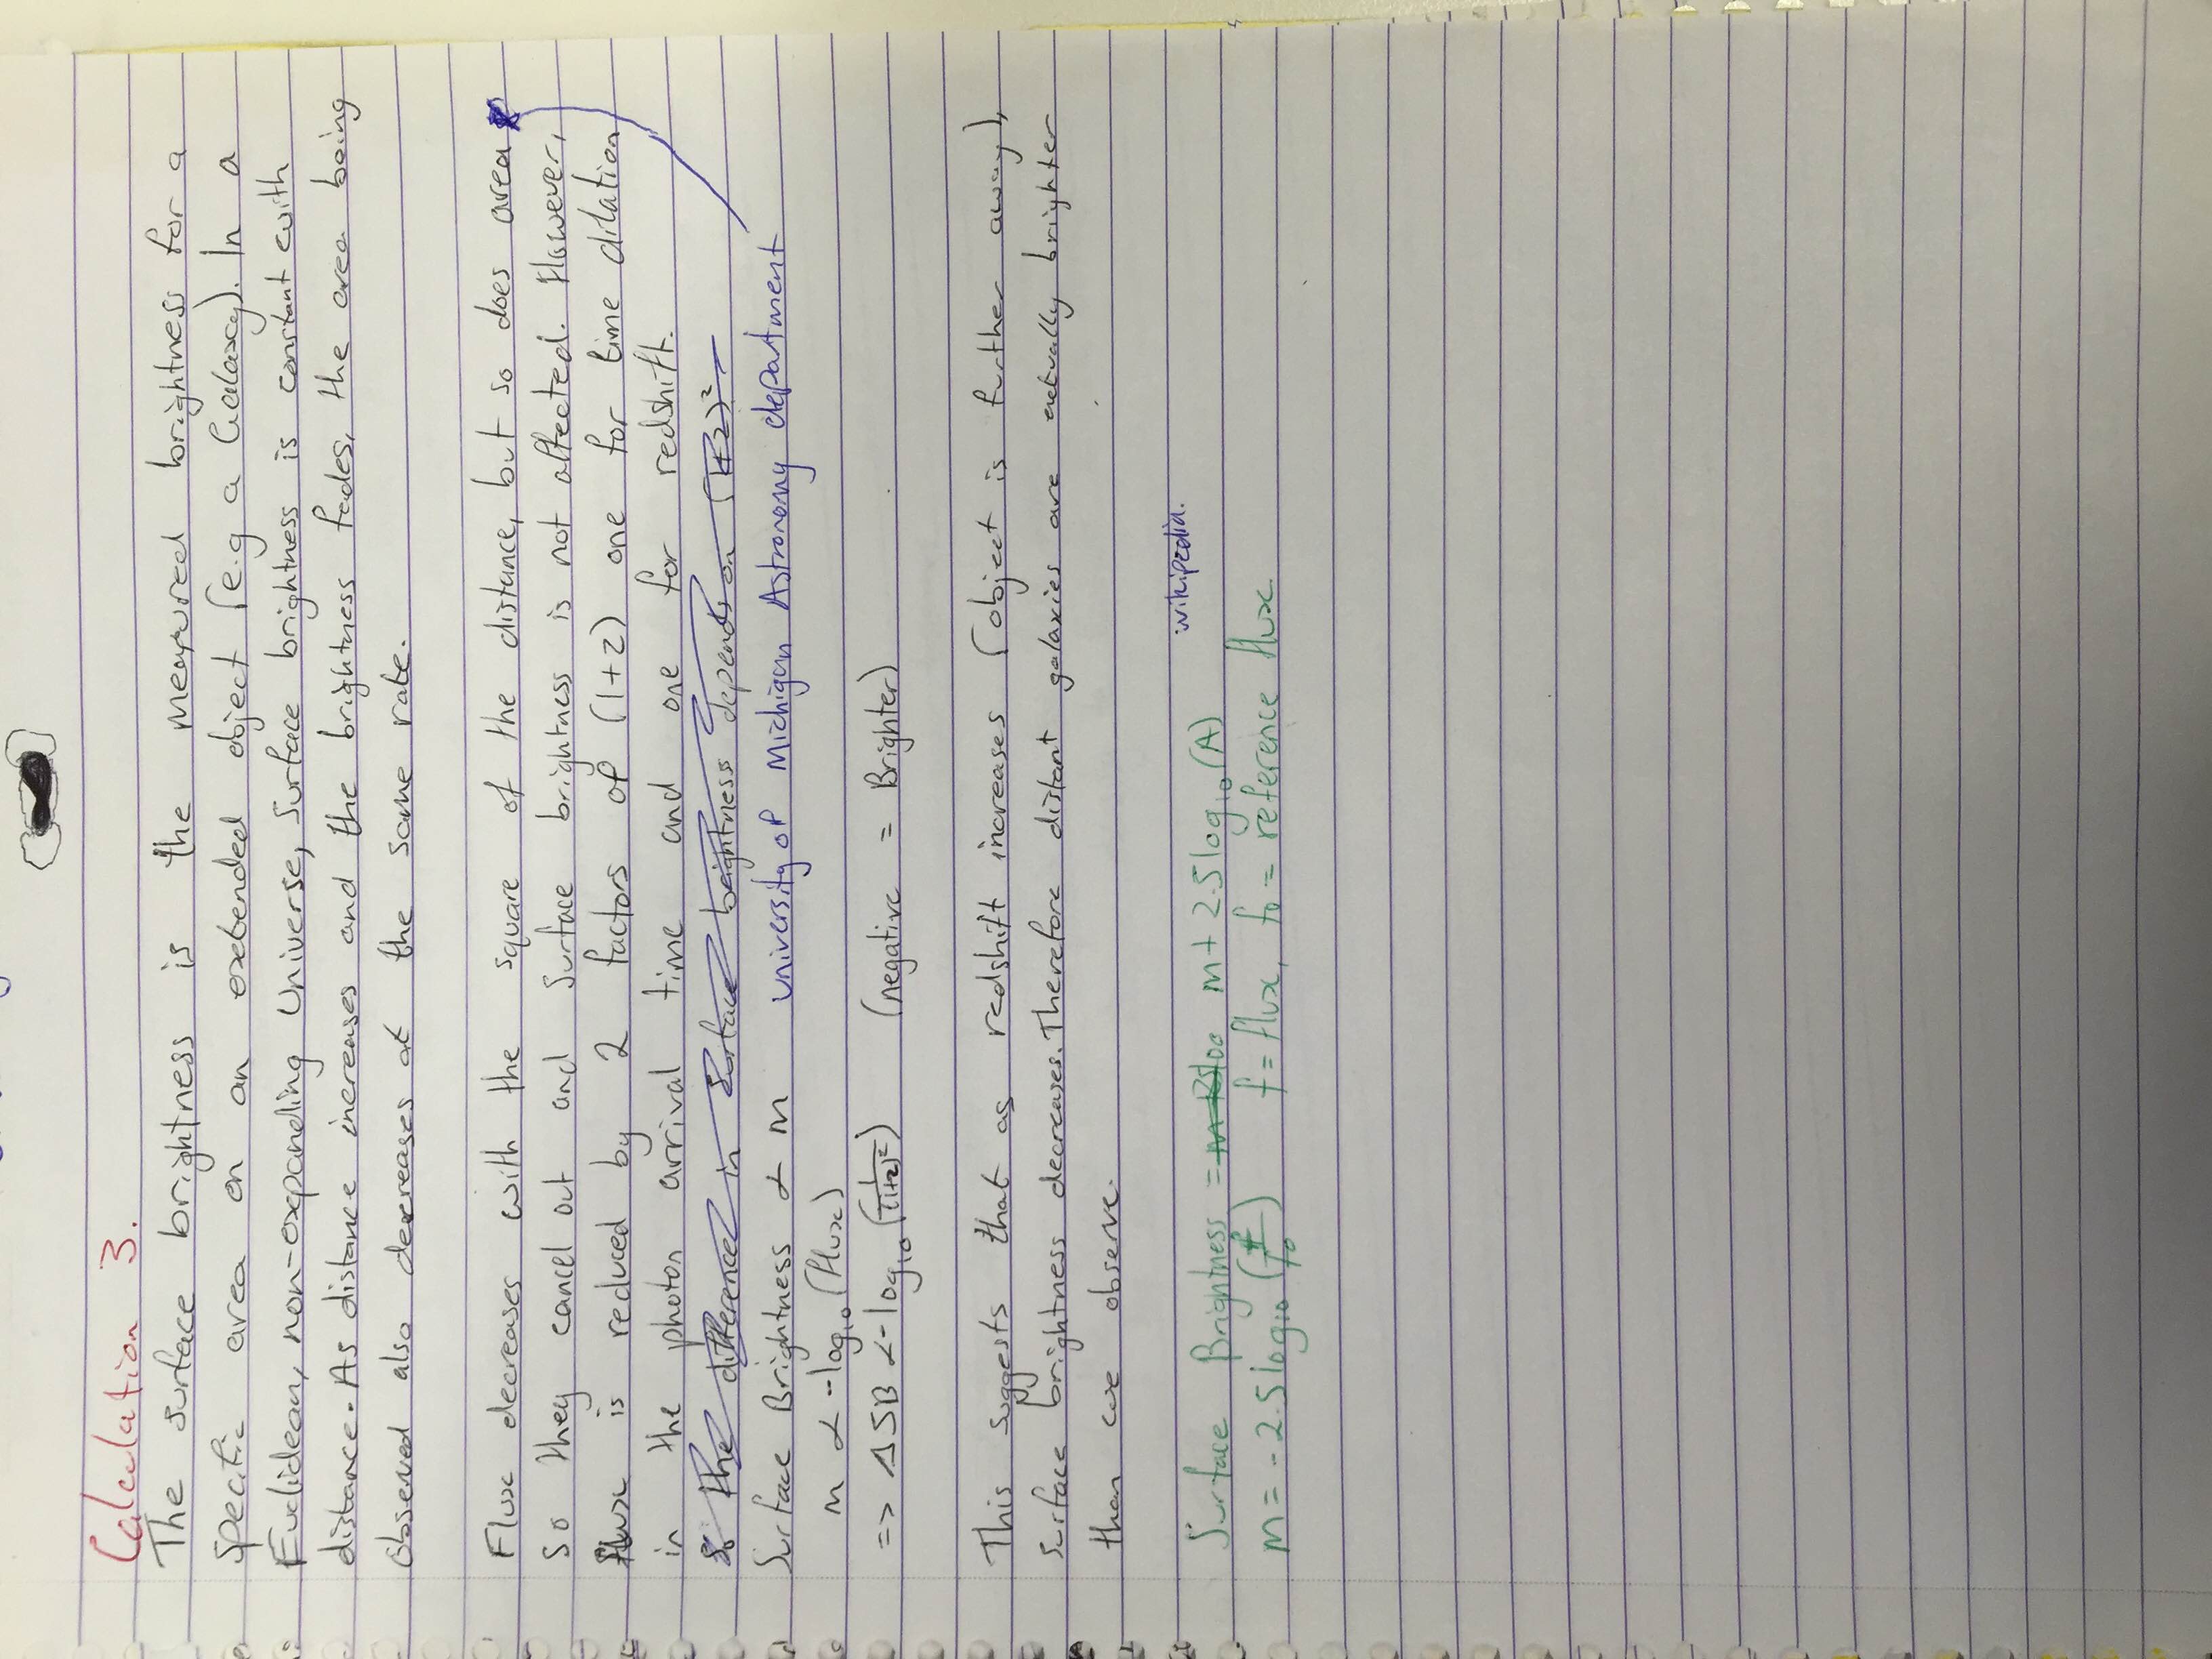 Calculation 3.
The surface brightness is the measured brightness for a
specific area on an extended object (e.g a Galaxy). In a
Euclidean, non-expanding Universe, Surface brightness is constant with
distance. As distance increases and the brightness fades, the area being
observed also decreases at the same rate.
Flux decreases with the square of the distance, but so does area
so they cancel out and surface brightness is not affected. However,
flux is reduced by 2 factors of (1+z) one for time dilation
in the photon arrival time and one for redshift.
So the difference in surface brightness depends on (1+z)²
Surface Brightness ∝ m University of Michigan Astronomy department
m ∝ -log₁₀(flux)
=> ΔSB ∝ -log₁₀(1/(1+z)²) (negative = Brighter)
This suggests that as redshift increases (object is further away),
surface brightness decreases. Therefore distant galaxies are actually brighter
than we observe.
wikipedia.
Surface Brightness = m + 2.5log₁₀(A)
m = -2.5log₁₀(f/f₀) f = flux, f₀ = reference flux.